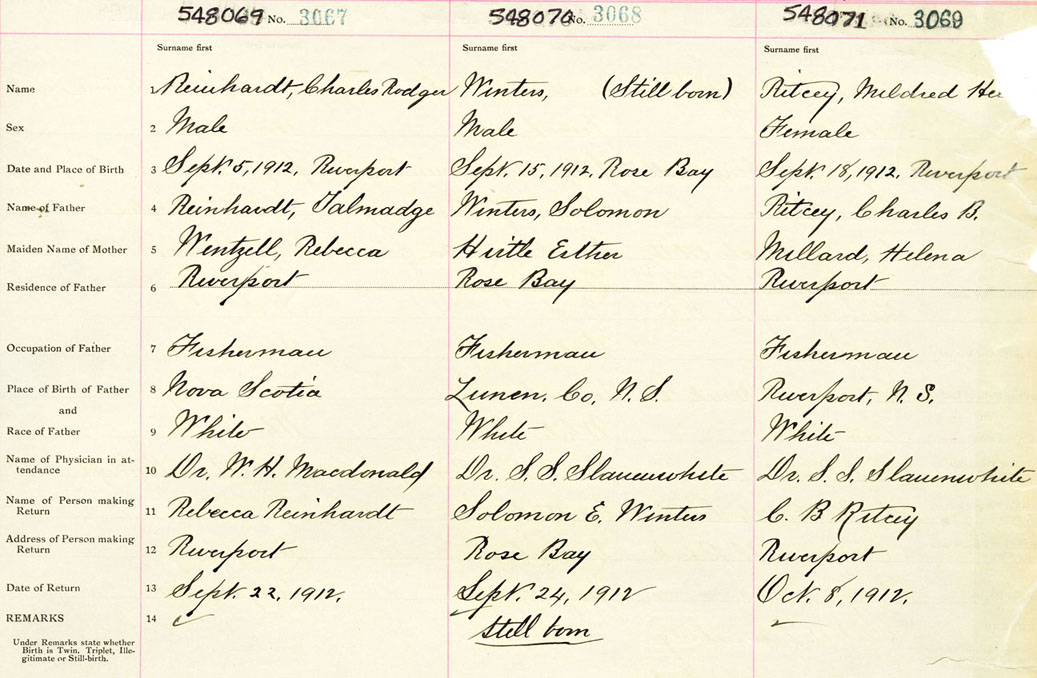 548069 No. 3067 548070 No. 3068 548071 No. 3069
Surname first Surname first Surname first
Name 1 Reinhardt, Charles Rodger Winters, (Still born) Ritcey, Mildred
Sex 2 Male Male Female
Date and Place of Birth 3 Sept. 5, 1912, Riverport Sept. 15, 1912, Rose Bay Sept. 18, 1912, Riverport
Name of Father 4 Reinhardt, Talmadge Winters, Solomon Ritcey, Charles B.
Maiden Name of Mother 5 Wentzell, Rebecca Hirtle Esther Millard, Helena
Residence of Father 6 Riverport Rose Bay Riverport
Occupation of Father 7 Fisherman Fisherman Fisherman
Place of Birth of Father 8 Nova Scotia Lunen. Co, N. S. Riverport, N. S.
and
Race of Father 9 White White White
Name of Physician in at-
tendance 10 Dr. W. H. Macdonald Dr. S. S. Slauenwhite Dr. S. S. Slauenwhite
Name of Person making
Return 11 Rebecca Reinhardt Solomon E. Winters C. B Ritcey
Address of Person making
Return 12 Riverport Rose Bay Riverport
Date of Return 13 Sept. 22, 1912. Sept. 24, 1912 Oct. 8, 1912.
REMARKS 14 Still born
Under Remarks state whether
Birth is Twin, Triplet, Ille-
gitimate or Still-birth.